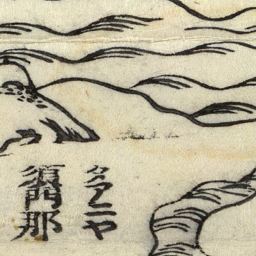 タアニヤ
須門那